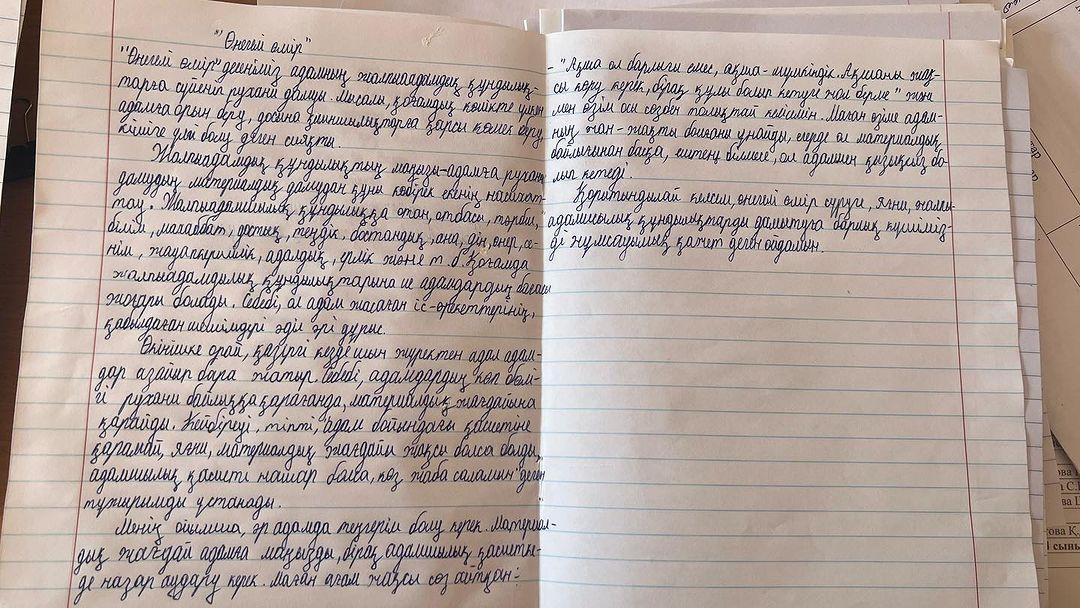 "Өнегелі өмір"
"Өнегелі өмір" дегеніміз адамның жалпыадамдық құндылық-
тарға сүйеніп рухани дамуы. Мысалы, қоғамдық көлікте үлкен
адамға орын беру, досына қиыншылықтарға қарсы көмек беру,
кішіге үлгі болу деген сияқты.
Жалпыадамдық құндылықтың маңызы-адамға рухани
дамудың материалдық дамудан құны көбірек екенін насихат-
тау. Жалпыадамшылық құндылыққа отан, отбасы, тәрбие,
білім, махаббат, достық, теңдік, бостандық, ана, дін, өнер, се-
нім, жауапкершілік, адалдық, ерлік және т.б. Қоғамда
жалпыадамдылық құндылықтарына ие адамдардың бағасы
жоғары болады. Себебі, ол адам жасаған іс-әрекеттерінің,
қабылдаған шешімдері әділ әрі дұрыс.
Өкінішке орай, қазіргі кезде шын жүректен адал адам-
дар азайып бара жатыр. Себебі, адамдардың көп бөлі-
гі рухани байлыққа қарағанда, материалдық жағдайына
қарайды. Кейбіреуі, тіпті, адам бойындағы қасиетіне
қарамай, яғни, материалдық жағдайы жақсы болса болды,
адамшылық қасиеті нашар болса, көз жаба саламын" деген
тұжырымды ұстанады.
Менің ойымша, әр адамда теңгерім болу керек. Материал-
дық жағдай адамға маңызды, бірақ, адамшылық қасиетке-
де назар аудару керек. Маған ағам жақсы сөз айтқан:
- "Ақша ол барлығы емес, ақша-мүмкіндік. Ақшаны жақ-
сы көру керек, бірақ құлы болып кетуге жол берме" және
мен өзім осы сөзбен толықтай келісемін. Маған өзіме адам-
ның жан-жақты болғаны ұнайды, егерде ол материалдық
байлығынан басқа, ештеңе білмесе, ол адаммен қызықсыз бо-
лып кетеді.
Қорытындылай келсем, өнегелі өмір сүруге, яғни, жалпы-
адамшылық құндылықтарды дамытуға барлық күшіміз-
ді жұмсауымыз қажет деген ойдамын.